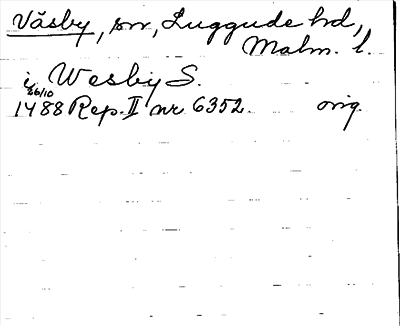 Väsby, sn, Luggude hd,
Malm. l.
i Wesby S.
26/10
1488 Rep. II nr 6352. orig.